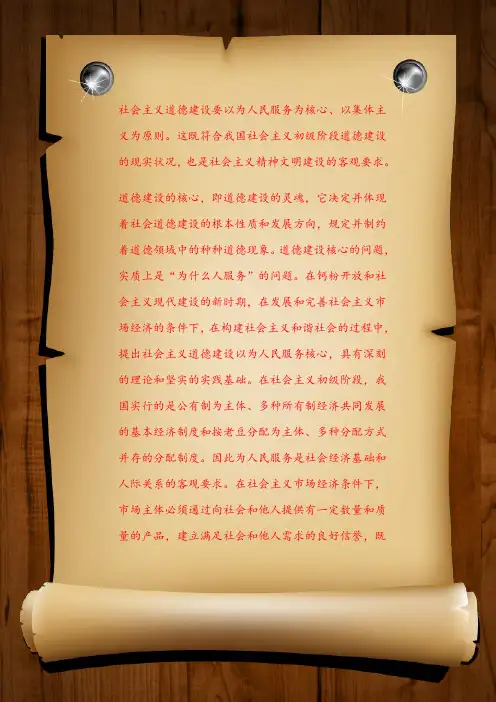 社会主义道德建设要以为人民服务为核心、以集体主
义为原则。这既符合我国社会主义初级阶段道德建设
的现实状况，也是社会主义精神文明建设的客观要求。
道德建设的核心，即道德建设的灵魂，它决定并体现
着社会道德建设的根本性质和发展方向，规定并制约
着道德领域中的种种道德现象。道德建设核心的问题，
实质上是“为什么人服务”的问题。在钙粉开放和社
会主义现代建设的新时期，在发展和完善社会主义市
场经济的条件下，在构建社会主义和谐社会的过程中，
提出社会主义道德建设以为人民服务核心，具有深刻
的理论和坚实的实践基础。在社会主义初级阶段，我
国实行的是公有制为主体、多种所有制经济共同发展
的基本经济制度和按老豆分配为主体、多种分配方式
并存的分配制度。因此为人民服务是社会经济基础和
人际关系的客观要求。在社会主义市场经济条件下，
市场主体必须通过向社会和他人提供有一定数量和质
量的产品，建立满足社会和他人需求的良好信誉，既